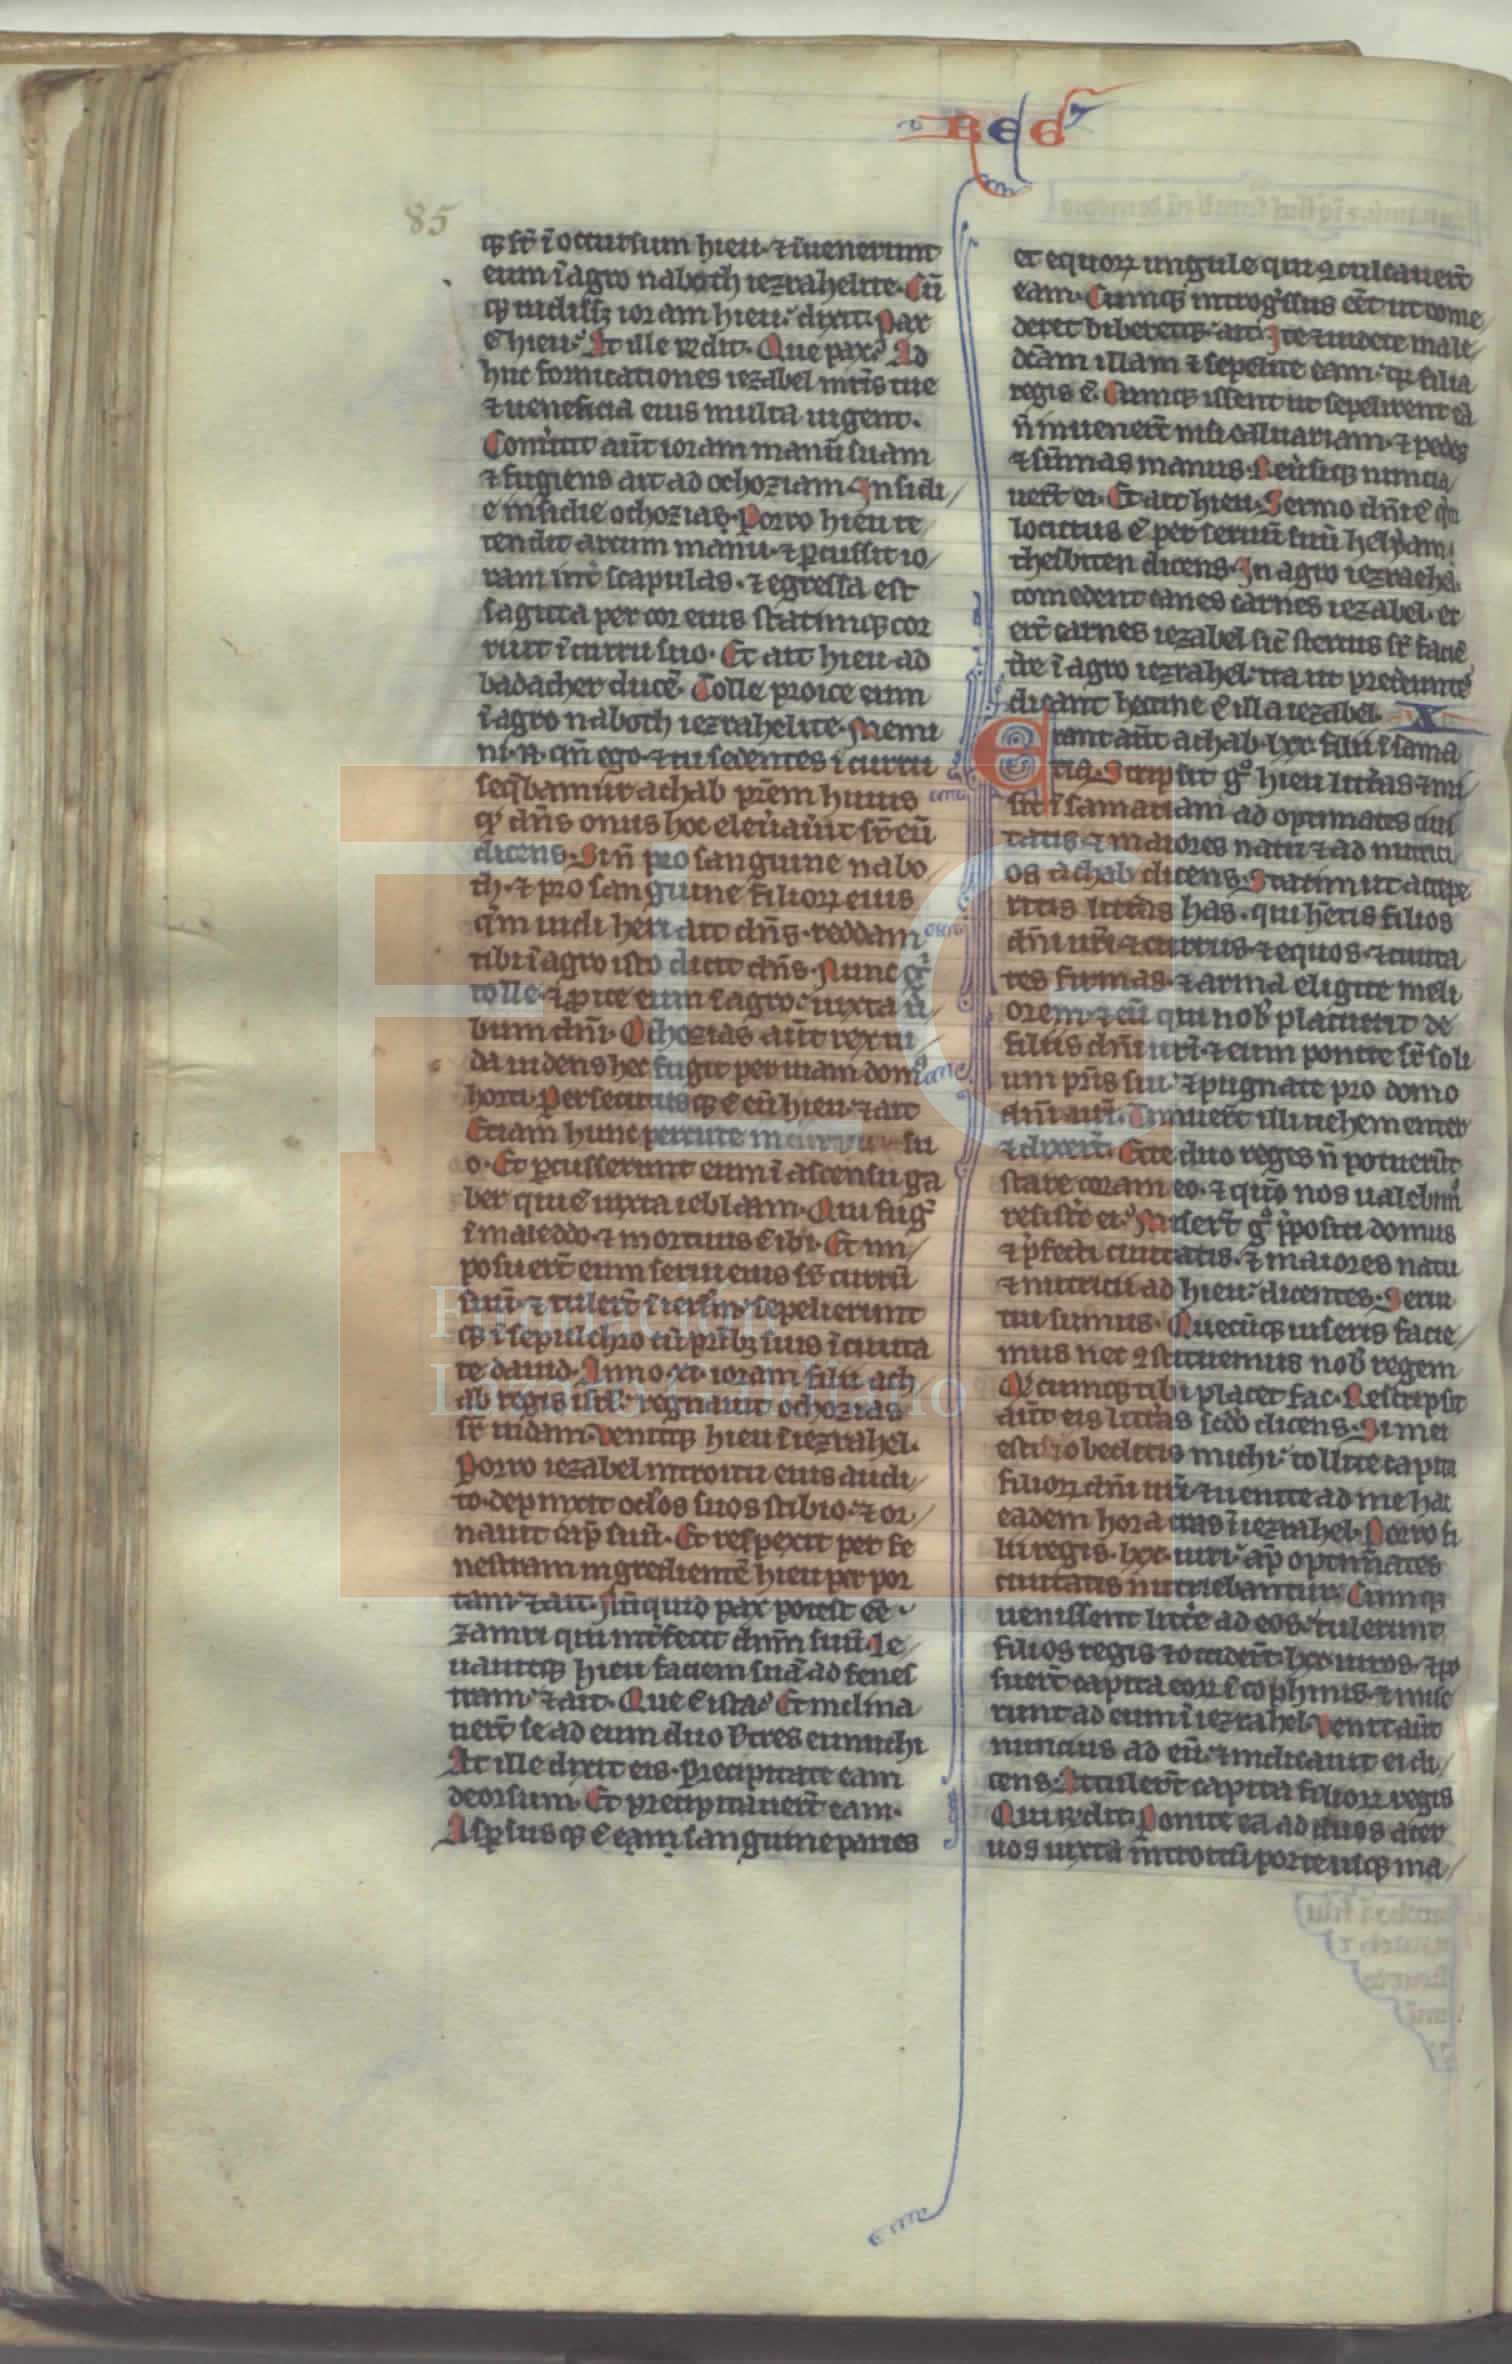 REG
85
q ſt̄ ī occurſum hieu · ⁊ īuenerunt
eum ī agro naboth iezrahelite · Cū
q uidiſſꝫ ioram hieu · dixit · Pax
ē hieu · At ille r̄dit · Que pax · Ad
huc fornicationes iezabel mr̄is tue
⁊ ueneficia eius multa uigent ·
Conu̇tit aūt ioram manū ſuam
⁊ fugiens ait ad ochoziam · Inſidi
e inſidie ochozias · Porro hieu te
tendit arcum manu · ⁊ ꝑcuſſit io
ram int̄ ſcapulas · ⁊ egreſſa eſt
ſagitta per cor eius ſtatimqꝫ cor
ruit ī curru ſuo · Et ait hieu ad
badacher ducē · Tolle proice eum
ī agro naboth iezrahelite · Memi
ni · n̄ · qn̄ ego · ⁊ tu ſedentes ī curru
ſeq̄bamur achab pr̄em huius
qd̓ dn̄s onus hoc eleuauit ſr̄ eū
dicens · Si n̄ pro ſanguine nabo
th · ⁊ pro ſanguine filioꝝ eius
q̄m uidi heri ait dn̄s · reddam
tibi ī agro iſto dicit dn̄s · Nunc gͥ
tolle · ⁊ ꝓice eum ī agro · iuxta ū
bum dn̄i · Ochozias aūt rex iu
da uidens hec fugit per uiam domꝰ
horti · Perſecutuſqꝫ ē eū hieu · ⁊ ait
Etiam hunc percute in curru ſu
o · Et ꝑcuſſerunt eum ī aſcenſu ga
ber qui ē iuxta ieblaam · Qui fugͥ
ī mageddo · ⁊ mortuus ē ibi · Et im
poſuer̄t eum ſerui eius ſr̄ currū
ſuū · ⁊ tuler̄t ī ierſm̄ · ſepelierunt
qꝫ ī ſepulchro cū pr̄ibꝫ ſuis ī ciuita
te dauid · Anno · xi · ioram filii ach
ab regis iſrl̄ · regnauit ochozias
ſr̄ iudam · Venitqꝫ hieu ī iezrahel ·
Porro iezabel introitu eius audi
to · depinxit oc̓los ſuos ſtibio · ⁊ or
nauit cap̄ ſuū · Et reſpexit per fe
neſtram ingredientē hieu per por
tam · ⁊ ait · Nūquid pax poteſt ēē
zamri qui int̓fecit dn̄m ſuū · Le
uauitqꝫ hieu faciem ſuā ad feneſ
tram · ⁊ ait · Que ē iſta · Et inclina
uer̄t ſe ad eum duo ŭ tres eunuchi
At ille dixit eis · Precipitate eam
deorſum · Et precipitauer̄t eam ·
Aſꝑſuſqꝫ ē eam ſanguine paries
et equoꝝ ungule qui ꝯculcauer̄t
eam · Cumqꝫ introgͥſſus eēt ut come
deret biberetqꝫ · ait · Ite ⁊ uidete male
dc̄am illam ⁊ ſepelite eam · qꝛ filia
regis ē · Cumqꝫ iſſent ut ſepelirent eā
n̄ inuener̄t niſi caluariam · ⁊ pedes
⁊ ſūmas manus · Reu̇ſiqꝫ nuncia
uer̄t ei · Et ait hieu · Sermo dn̄i ē qͥm
locutus ē per ſeruū ſuū helyam
theſbiten dicens · In agro iezrahel
comedent canes carnes iezabel · et
er̄t carnes iezabel ſic̄ ſtercus ſr̄ faciē
tr̄e ī agro iezrahel · ita ut pretereuntes
dicant heccine ē illa iezabel · X
Erant aūt achab · lxx · filii ī ſama
ria · Scripſit gͦ hieu litt̓as ⁊ mi
ſit ī ſamariam ad optimates ciui
tatis · ⁊ maiores natu ⁊ ad nutrici
os achab dicens · Statim ut accepe
ritis litt̓as has · qui hētis filios
dn̄i ur̄i · ⁊ currus · ⁊ equos · ⁊ ciuita
tes firmas · ⁊ arma eligite meli
orem · ⁊ eū qui nob̓ placuerit de
filiis dn̄i ur̄i · ⁊ eum ponite ſr̄ ſoli
um pr̄is ſui · ⁊ pugnate pro domo
dn̄i ur̄i · Timuer̄t illi uehementer
⁊ dixer̄t · Ecce duo reges n̄ potuer̄t
ſtare coram eo · ⁊ quō nos ualebimꝰ
reſiſt̓e ei · Miſer̄t gͦ p̄poſiti domus
⁊ p̄fecti ciuitatis · ⁊ maiores natu
⁊ nutricii ad hieu · dicentes · Serui
tui ſumus · Quecūqꝫ iuſſeris facie
mus nec ꝯſtituemus nob̓ regem
Qcumqꝫ tibi placet fac · Reſcripſit
aūt eis litt̓as ſcd̓o dicens · Si mei
eſtis ⁊ obeditis michi · tollite capita
filioꝝ dn̄i ur̄i · ⁊ uenite ad me hac
eadem hora cras ī iezrahel · Porro fi
lii regis · lxx · uiri · ap̄ optimates
ciuitatis nutriebantur · Cumqꝫ
ueniſſent litt̓e ad eos · tulerunt
filios regis ⁊ occider̄t · lxx · uiros · ⁊ po
ſuer̄t capita eoꝝ ī cophinis · ⁊ miſe
runt ad eum ī iezrahel · Venit aūt
nuncius ad eū · ⁊ indicauit ei di
cens · Attuler̄t capita filioꝝ regis
Qui r̄dit · Ponite ea ad duos acer
uos iuxta introitū porte uſqꝫ ma
FLG
Fundación
Lázaro Galdiano